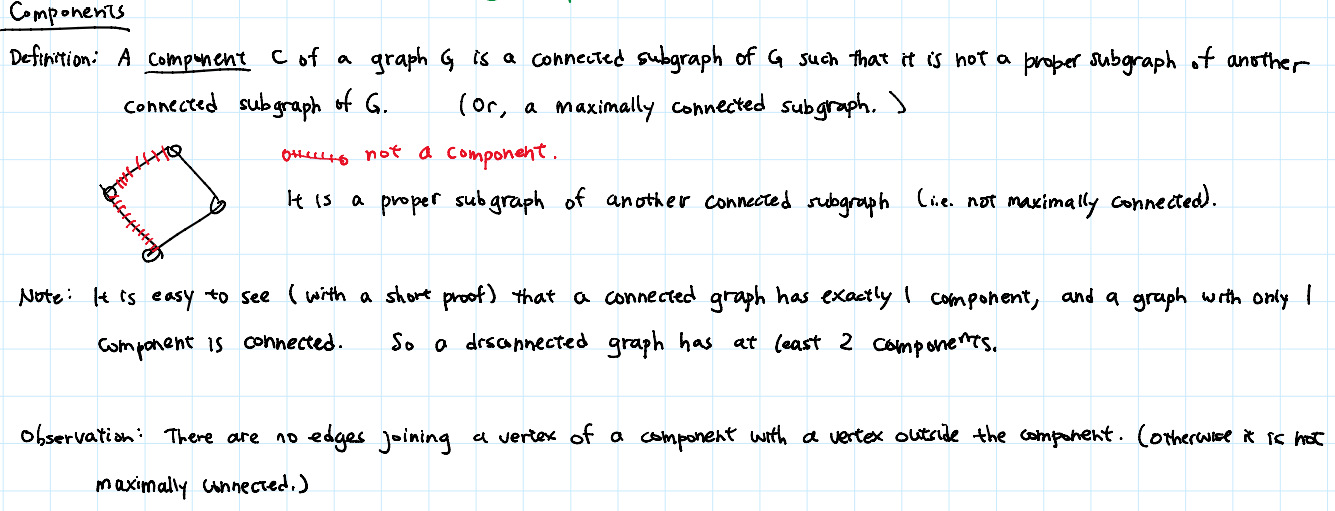 Components
Definition: A component C of a graph G is a connected subgraph of G such that it is not a proper subgraph of another
connected subgraph of G. (Or, a maximally connected subgraph.)
not a component.
It is a proper subgraph of another connected subgraph (i.e. not maximally connected).
Note: It is easy to see (with a short proof) that a connected graph has exactly 1 component, and a graph with only 1
component is connected. So a disconnected graph has at least 2 components.
Observation: There are no edges joining a vertex of a component with a vertex outside the component. (otherwise it is not
maximally connected.)